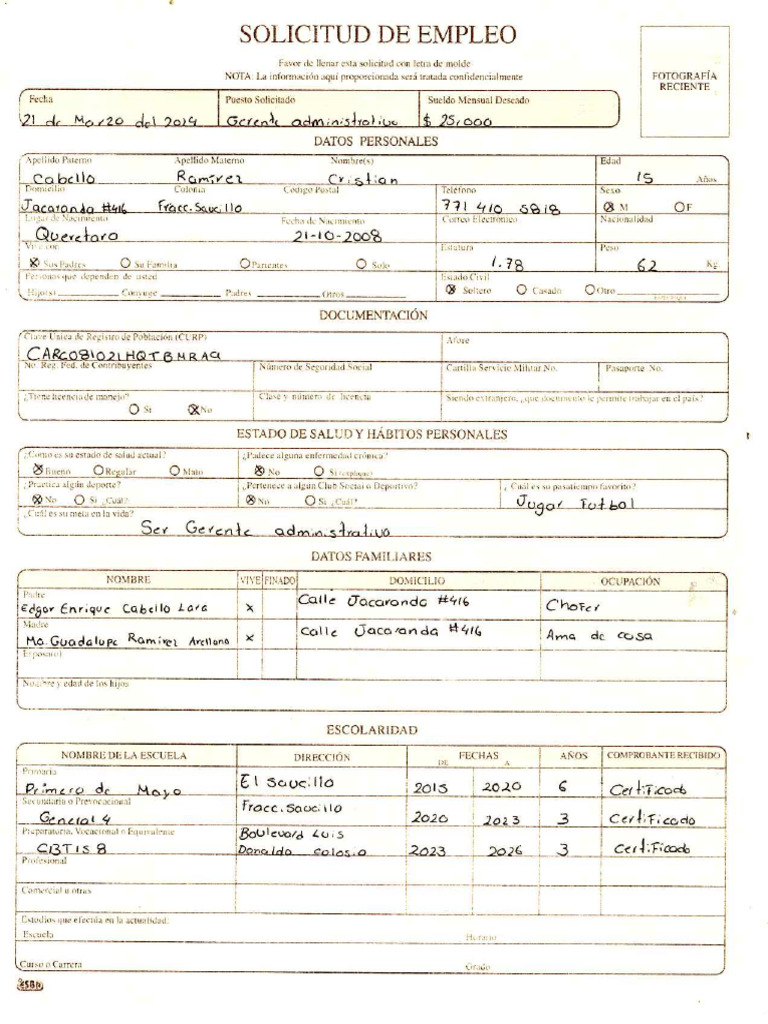 SOLICITUD DE EMPLEO
Favor de llenar esta solicitud con letra de molde
NOTA: La información aquí proporcionada será tratada confidencialmente
FOTOGRAFÍA
RECIENTE
Fecha Puesto Solicitado Sueldo Mensual Deseado
21 de Marzo del 2024 Gerente administrativo $ 25,000
DATOS PERSONALES
Apellido Paterno Apellido Materno Nombre(s) Edad
Cabello Ramírez Cristian 15 Años
Domicilio Colonia Código Postal Teléfono Sexo
Jacaranda #416 Fracc. Saucillo 771 410 5818 M F
Lugar de Nacimiento Fecha de Nacimiento Correo Electrónico Nacionalidad
Queretaro 21-10-2008
Vive con Estatura Peso
Sus Padres Su Familia Parientes Solo 1.78 62 Kg.
Personas que dependen de usted Estado Civil
Hijo(s) Conyuge Padres Otros Soltero Casado Otro
DOCUMENTACIÓN
Clave Única de Registro de Población (CURP) Afore
CARC081021HQTBMRA9
No. Reg. Fed. de Contribuyentes Número de Seguridad Social Cartilla Servicio Militar No. Pasaporte No.
¿Tiene licencia de manejo? Clase y número de licencia Siendo extranjero, ¿que documento le permite trabajar en el país?
Si No
ESTADO DE SALUD Y HÁBITOS PERSONALES
¿Como es su estado de salud actual? ¿Padece alguna enfermedad crónica?
Bueno Regular Malo No Si (explique)
¿Practica algún deporte? ¿Pertenece a algún Club Social o Deportivo? ¿Cuál es su pasatiempo favorito?
No Si ¿Cuál? No Si ¿Cuál? Jugar Futbol
¿Cuál es su meta en la vida?
Ser Gerente administrativo
DATOS FAMILIARES
NOMBRE VIVE FINADO DOMICILIO OCUPACIÓN
Padre
Edgar Enrique Cabello Lara x Calle Jacaranda #416 Chofer
Madre
Ma. Guadalupe Ramirez Arellano x Calle Jacaranda #416 Ama de casa
Esposa(o)
Nombre y edad de los hijos
ESCOLARIDAD
NOMBRE DE LA ESCUELA DIRECCIÓN DE FECHAS A AÑOS COMPROBANTE RECIBIDO
Primaria
Primero de Mayo El Saucillo 2015 2020 6 Certificado
Secundaria o Prevocacional
General 4 Fracc. Saucillo 2020 2023 3 Certificado
Preparatoria, Vocacional o Equivalente
CBTIS 8 Boulevard Luis
Donaldo Colosio 2023 2026 3 Certificado
Profesional
Comercial u otras
Estudios que efectúa en la actualidad:
Escuela Horario
Curso o Carrera Grado